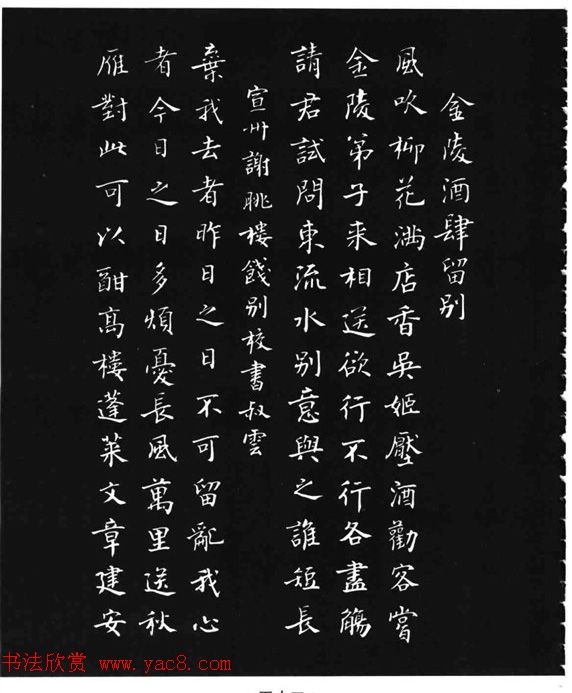 金陵酒肆留别
風吹柳花满店香吳姬壓酒勸客嘗
金陵弟子来相送欲行不行各盡觴
請君試問東流水别意與之誰短長
宣州謝朓樓餞别校書叔雲
棄我去者昨日之日不可留亂我心
者今日之日多煩憂長風萬里送秋
雁對此可以酣高樓蓬萊文章建安
书法欣赏 www.yac8.com